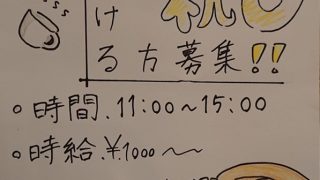 祝日
ける方募集!!
。時間.11:00~15:00
。時給.¥.1000~